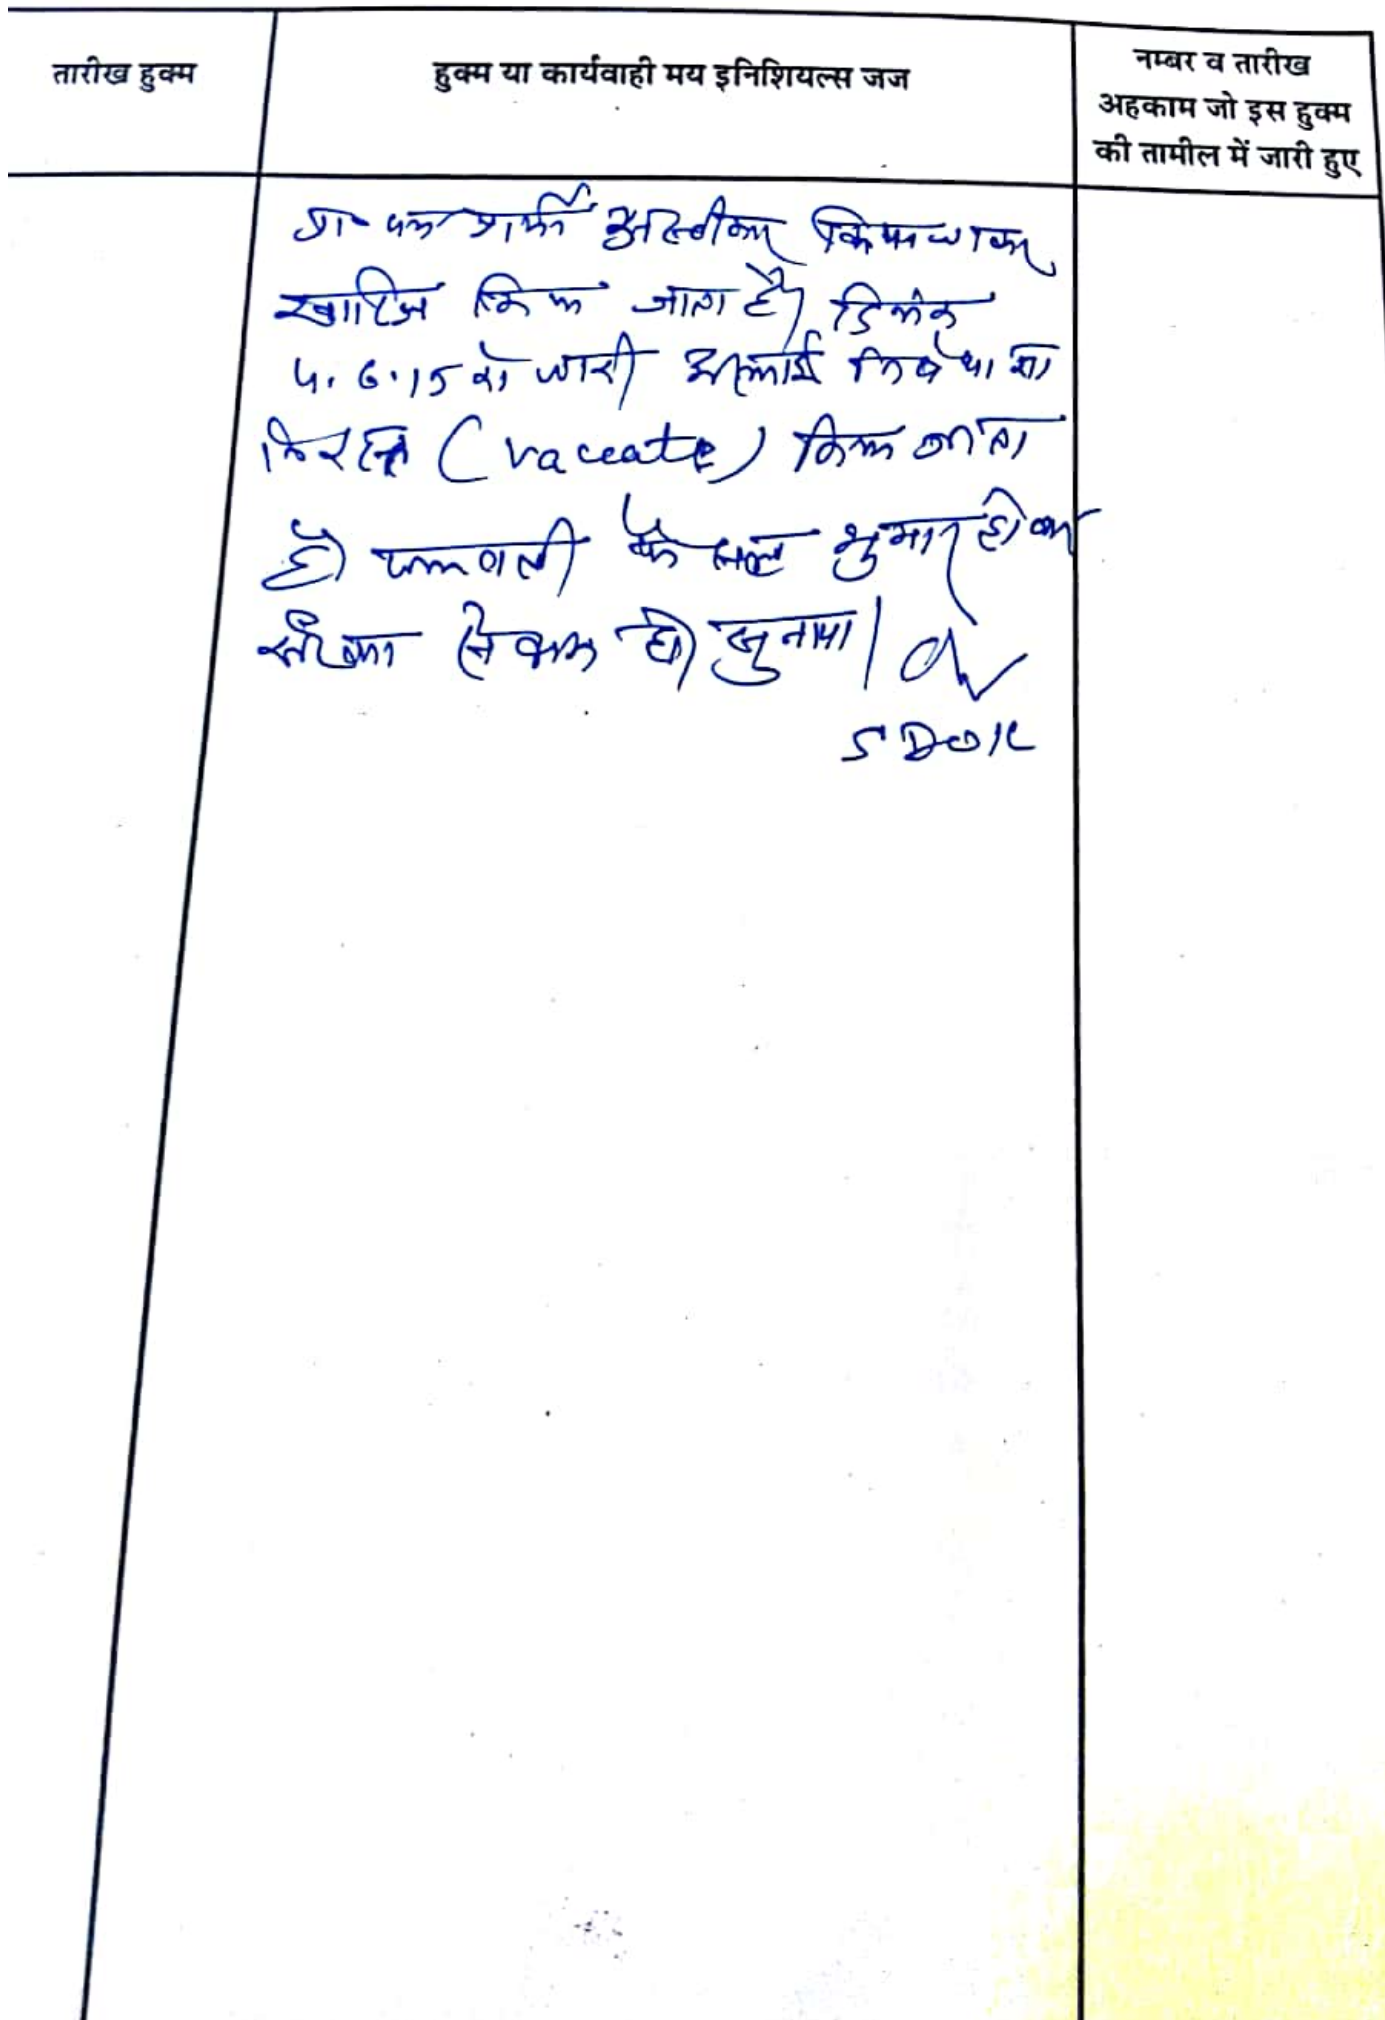 तारीख हुक्म
हुक्म या कार्यवाही मय इनिशियल्स जज
नम्बर व तारीख
अहकाम जो इस हुक्म
की तामील में जारी हुए
प्रा० पत्र प्रार्थी अस्वीकार किया जाकर
खारिज किया जाता है। दिनांक
4.6.15 को जारी अस्थाई निषेधाज्ञा
निरस्त (vaccate) किया जाता
है। पत्रावली फैसल शुमार होकर
हो। सुनाया।
SDO